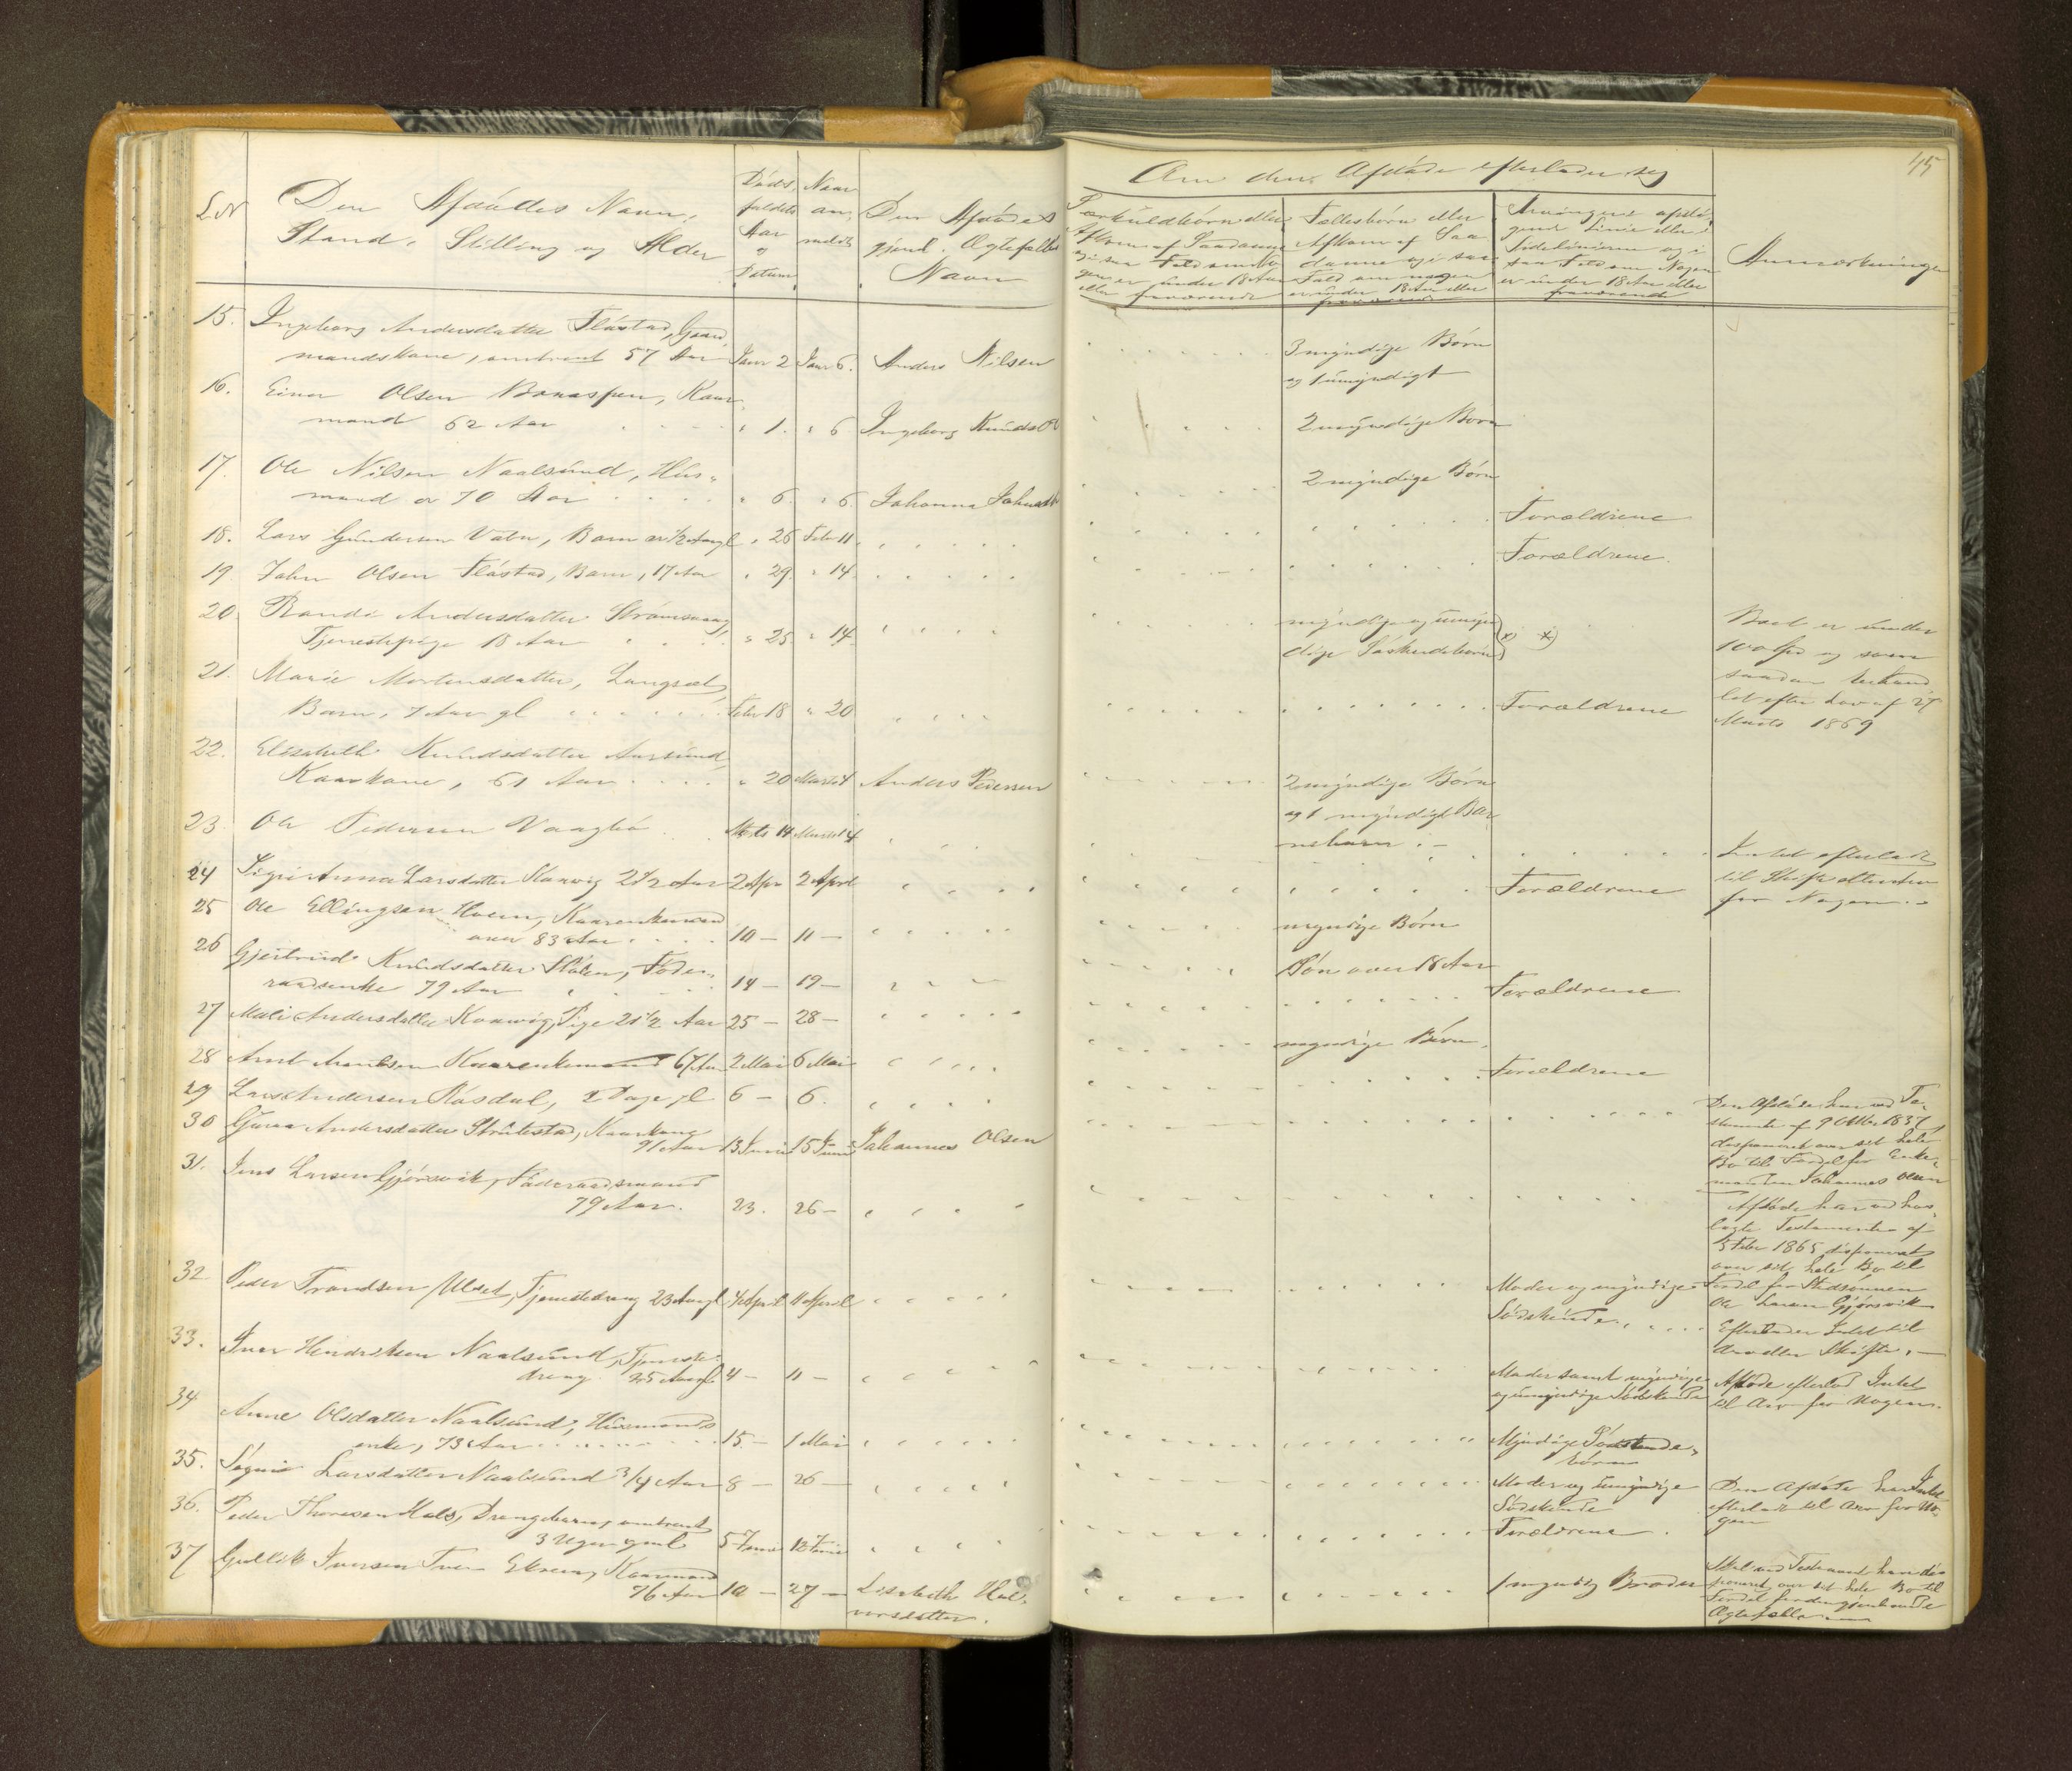 45
L.N
Den Afdødes Navn,
Stand, Stilling og Alder
Døds
faldets
Aar
og
Datum
Naar
an-
meldt
Den Afdødes
gjenl. Ægtefælles
Navn
Om den Afdøde efterlader sig
Særkuldbørn eller
Afkom af Saadanne
og i saa Fald om No-
gen er under 18 Aar
eller fraværende
Fællesbørn eller
Afkom af Saa
danne og i saa
Fald om nogen
er under 18 Aar eller
fraværende
Arvinger i opsti-
gende Linie eller i
Sidelinierne og i
saa Fald om Nogen
er under 18 Aar eller
fraværende
Anmærkninger
15. Ingeborg Andersdatter Fløstad, Gaard
mandskone, omtrent 57 Aar Janr 2 Janr 6. Anders Nilsen 3 myndige Børn
og 1 umyndigt
16. Einer Olsen Bonaspen, Kaar
mand 62 Aar " 1. " 6 Ingeborg Knudsdt 2 myndige Børn
17. Ole Nilsen Naalsund, Huus-
mand 70 Aar " 6. " 6. Johanna Johnsdt 2 myndige Børn
18. Lars Gundersen Vatn, Barn 1/2 Aar gl " 26 Febr 11 Forældrene
19. John Olsen Fløstad, Barn, 17 Aar " 29. " 14 Forældrene.
20. Randi Andersdatter Strømsvaag
Tjenestepige 18 Aar " 25 " 14 myndige og umyn
dige Søskendebørn x) x) Boet er under
100 Spd og som
saadan behand
let efter Lov af 27
Marts 1869
21. Marie Mortensdatter, Langsæt,
Barn, 7 Aar gl Febr 18 " 20 Forældrene
22. Elisabeth Knudsdatter Aarsund
Kaarkone, 61 Aar " 20 Marts 4 Anders Pedersen 2 myndige Børn
og 1 myndigt Bar
nebarn. –
23. Ole Pedersen Vaagbø Marts 14 Intet efterladt
til Skifte eller Arv
for Nogen. –
24 Sigri Anna Larsdatter Kanvig 2 1/2 Aar 2 Apr 2 April Forældrene
25 Ole Ellingsen Hoem, Kaarenkemand
over 83 Aar 10 – 11 – myndige Børn
26 Gjertrud Knudsdatter Stølen, Føde-
raadsenke 79 Aar 14 – 19 – Søn over 18 Aar
27 Mali Andersdatter Kanvig, Pige 2 1/2 Aar 25 – 28 – Forældrene
28 Arnt Arntsen Kaarenkemand 67 Aar 2 Mai 6 Mai myndige Børn.
29 Lars Andersen Rosdal, 2 Dage gl 6 – 6. Forældrene
30 Guroe Andersdatter Strutestad, Kaarkone
91 Aar 13 Juni 15 Juni Johannes Olsen Den Afdøde har ved Te-
stamente af 9 Octbr 1837
disponeret over sit hele
Bo til Fordel for Enke-
manden Johannes Olsen
31. Jens Larsen Gjørsvik, Føderaadsmand
79 Aar. 23. 26 – Afdøde har ved hos-
lagte Testamente af
5 Febr 1865 disponeret
over sit hele Bo til
Fordel for Stedsønnen
Ole Larsen Gjørsvik
32. Peder Trondsen Ulset, Tjenestedreng 23 Aar gl 4 April 11 April Moder og myndige
Sødskende Efterlader Intet til
Arv eller Skifte. –
33. Iver Hendriksen Naalsund, Tjeneste-
dreng 25 Aar gl 4 – 11 – Moder samt myndige
og umyndige Sødskende Afdøde efterlod Intet
til Arv for Nogen.
34 Anne Olsdatter Naalsund, Huusmands
enke, 73 Aar 15 – 1 Mai Myndige Sødskende-
børn
35. Larsdatter Naalsund 3/4 Aar 8 – 26 – Moder og umyndige
Sødskende Den Afdøde har Intet
efterladt til Arv for No-
gen
36. Peder Thoresen Hals, Drengebarn, omtrent
3 Uger gml 5 Juni 12 Juni Forældrene.
37 Gullik Iversen Tver Ekrem, Kaarmand
76 Aar 10 – 27 – Lisabeth Hal-
vorsdatter. 1 myndig Broder Skal ved Testament have dis
poneret over sit hele Bo til
Fordel for den gjenlevende
Ægtefælle. –